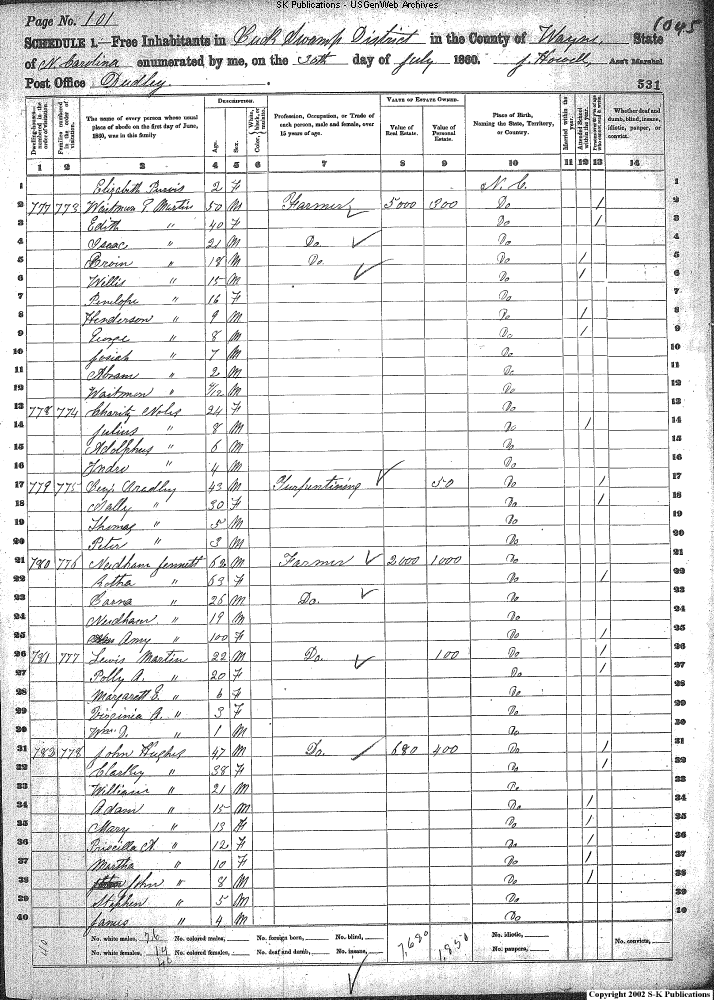 SK Publications - USGenWeb Archives
Page No. 101
1045
SCHEDULE 1.—Free Inhabitants in Buck Swamp District in the County of Wayne State
of N. Carolina enumerated by me, on the 30th day of July 1860. J. Howell, Ass't Marshal
Post Office Dudley.
531
DESCRIPTION. VALUE OF ESTATE OWNED.
Dwelling-houses—numbered in the order of visitation. Families numbered in the order of visitation. The name of every person whose usual place of abode on the first day of June, 1860, was in this family Age. Sex. Color, White, black, or mulatto. Profession, Occupation, or Trade of each person, male and female, over 15 years of age. Value of Real Estate. Value of Personal Estate. Place of Birth, Naming the State, Territory, or Country. Married within the year. Attended School within the year. Whether deaf and dumb, blind, insane, idiotic, pauper, or convict.
1 2 3 4 5 6 7 8 9 10 11 12 13 14
1 Elizabeth Purvis 2 F N. C. 1
2 777 773 Waitman T Martin 50 M Farmer 5000 300 Do / 2
3 Edith " 40 F Do / 3
4 Isaac " 21 M Do. Do 4
5 " 18 M Do. Do / 5
6 Willis " 15 M Do / 6
7 Penelope " 16 F Do 7
8 Henderson " 9 M Do / 8
9 George " 8 M Do / 9
10 Josiah " 7 M Do 10
11 Abram " 2 M Do 11
12 Waitman " /12 M Do 12
13 778 774 Charity Noles 24 F Do 13
14 Julius " 8 M Do / 14
15 Adolphus " 6 M Do 15
16 " 4 M Do 16
17 779 775 Benj. Bradley 43 M Turpentining 50 Do / 17
18 Sally " 30 F Do / 18
19 Thomas " 5 M Do 19
20 Peter " 3 M Do 20
21 780 776 Needham Jennett 62 M Farmer 2000 1000 Do 21
22 " 63 F Do / 22
23 " 26 M Do. Do 23
24 Needham " 19 M Do 24
25 Amy " 100 F Do / 25
26 781 777 Lewis Martin 22 M Do. 100 Do / 26
27 Polly A. " 20 F Do / 27
28 Margarett E. " 6 F Do 28
29 Virginia A. " 3 F Do 29
30 Wm " 1 M Do 30
31 782 778 John Hughs 47 M Do. 680 400 Do / 31
32 " 38 F Do / 32
33 William " 21 M Do 33
34 Adam " 15 M Do / 34
35 Mary " 13 F Do / 35
36 Priscilla A " 12 F Do / 36
37 Martha " 10 F Do / 37
38 John " 8 M Do / 38
39 Stephen " 5 M Do 39
40 James " 4 M Do 40
40 No. white males, 26 No. colored males, No. foreign born, No. blind, 7,680 1,850 No. idiotic, No. convicts,
No. white females, 14 No. colored females, No. deaf and dumb, No. insane, No. paupers,
40
Copyright 2002 S-K Publications